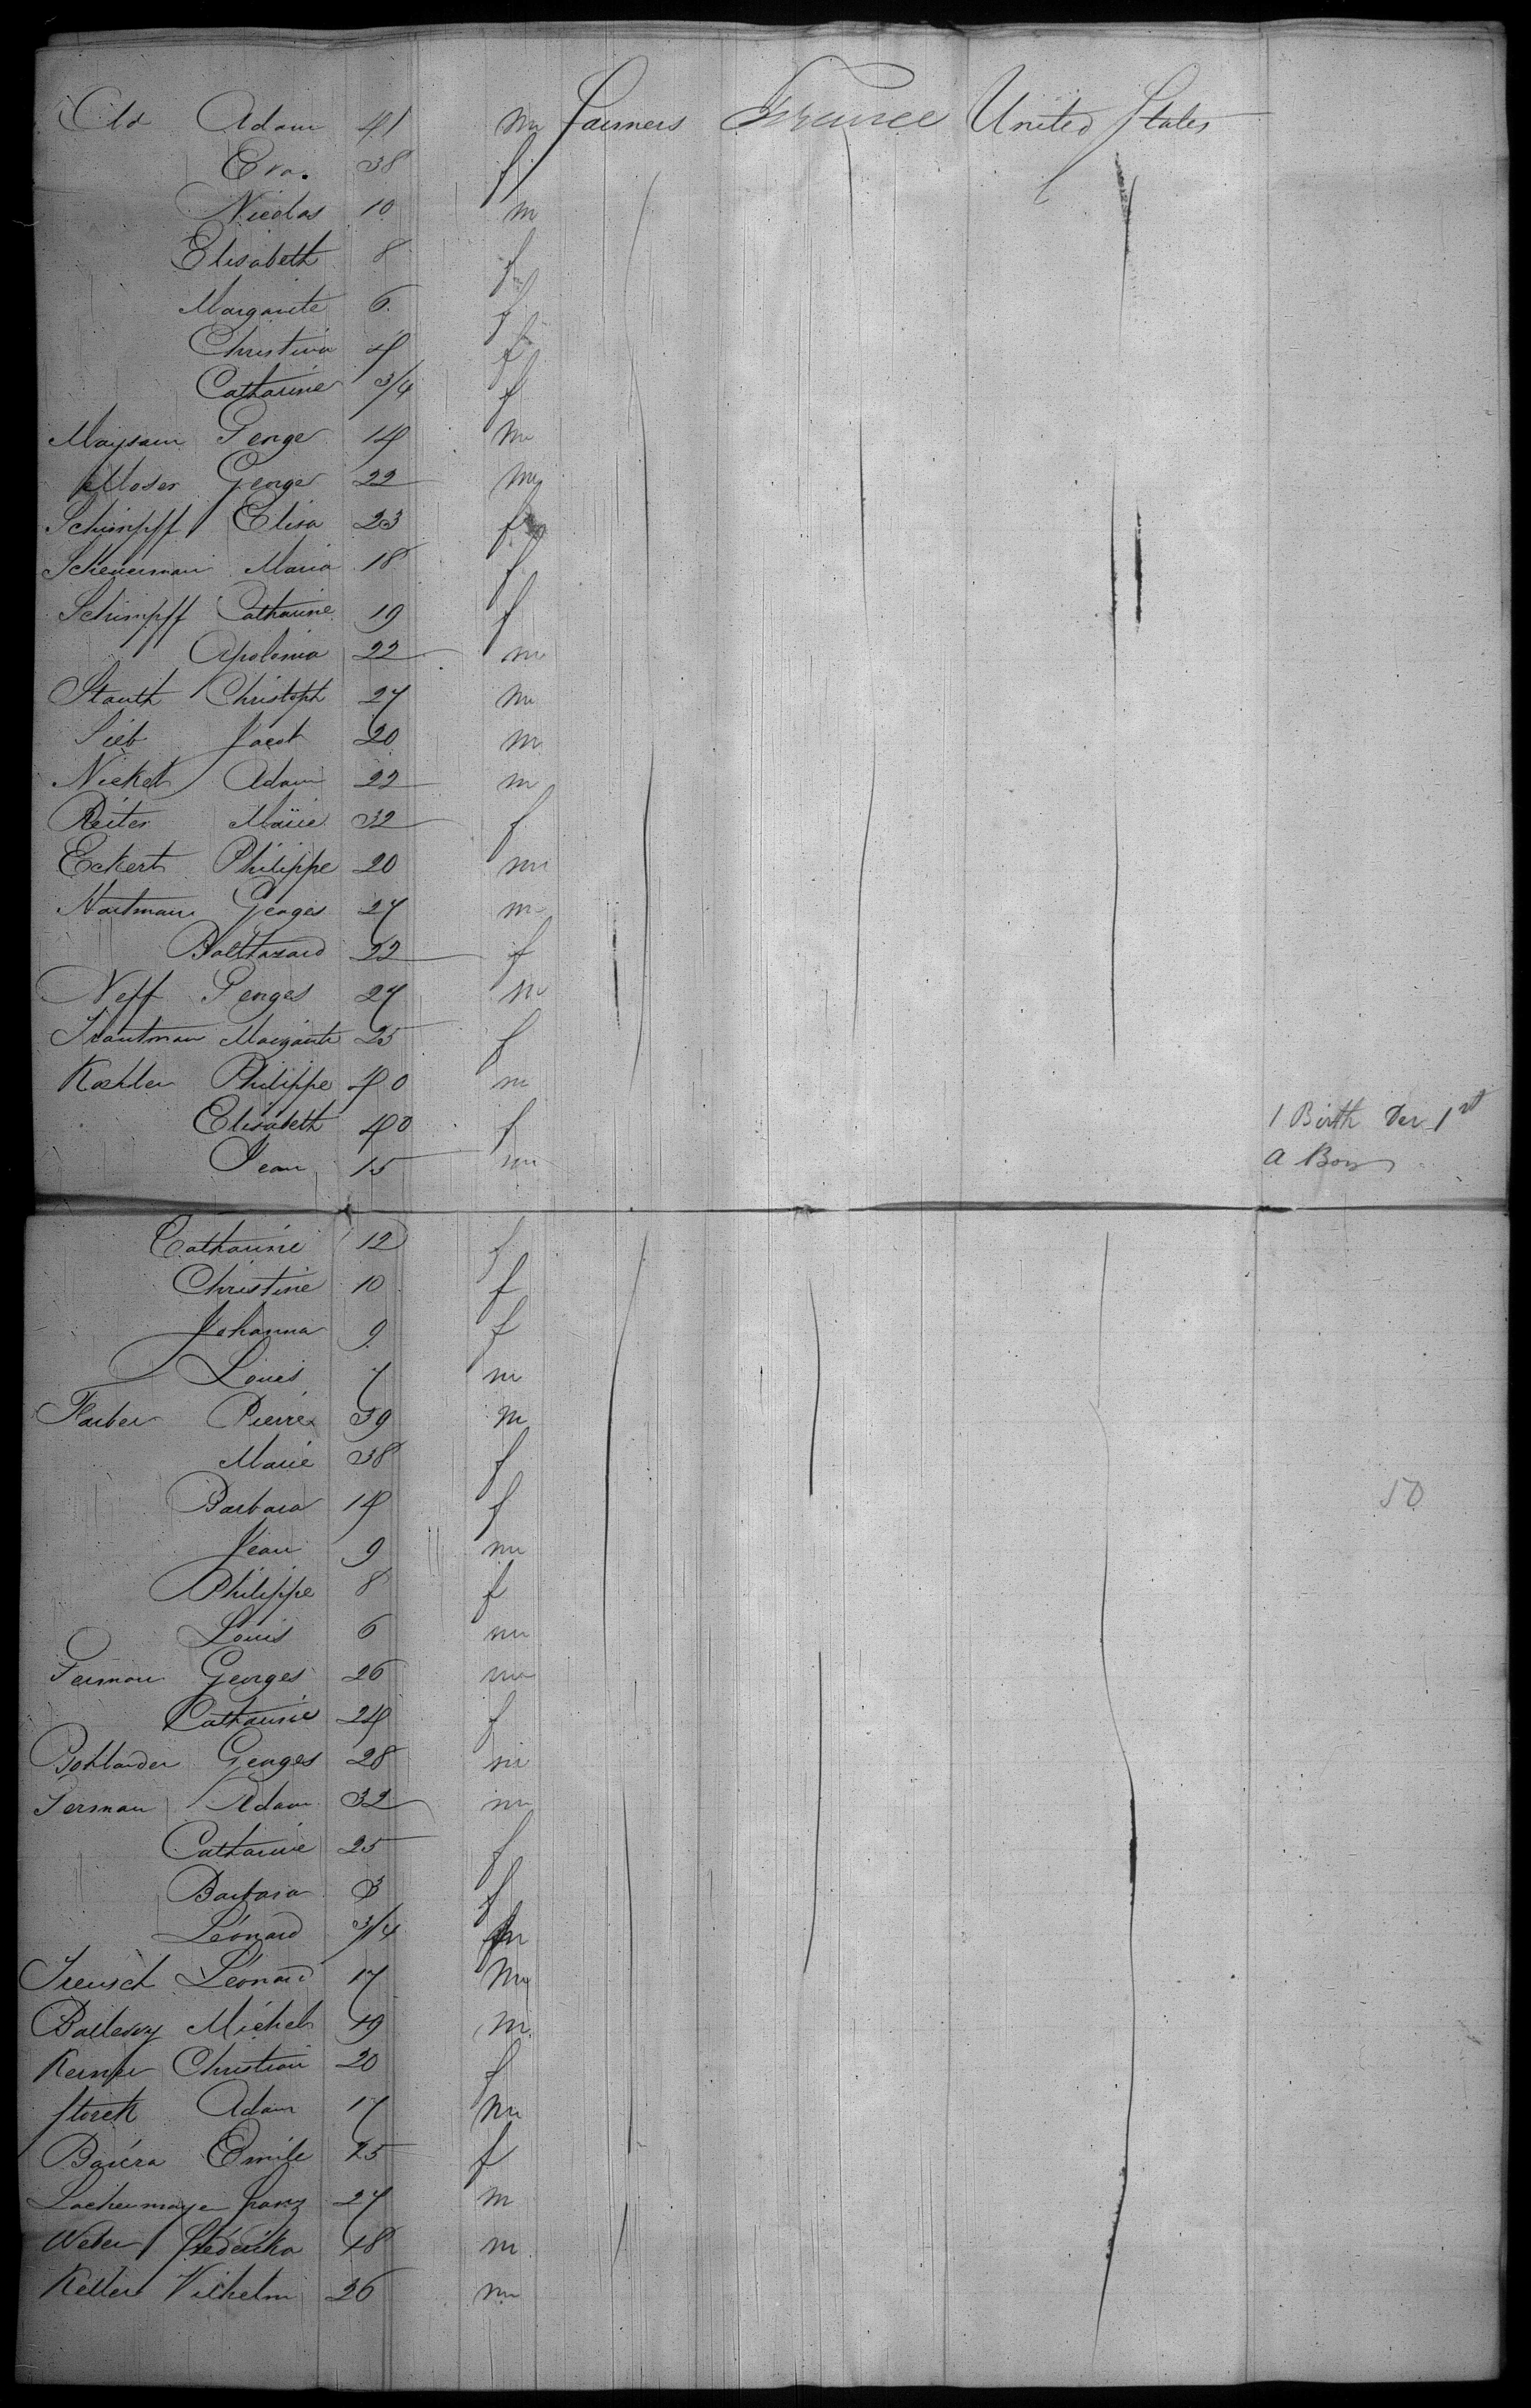 Old Adam 41 m farmers France United States
Eva. 38 f
Nicolas 10 m
Elisabeth 8 f
Margarite 6 f
Christina 4 f
Catharine 3/4 f
George 14 m
Moser George 22 m
Schimpff Elisa 23 f
Scheuerman Maria 18 f
Schimpff Catharine 19 f
Apolonia 22 m
Stauth Christoph 27 m
Sieb Jacob 20 m
Nickel Adam 22 m
Reiter Marie 32 f
Eckert Philippe 20 m
Hartmann Georges 27 m
Balthazard 22 f
Neff Georges 27 m
Trautman Margarite 25 f
Koehler Philippe 40 m
Elisabeth 40 f 1 Birth Dec 1st
Jean 15 m a Boy
Catharine 12 f
Christine 10 f
Johanna 9 f
Louis 7 m
Farber Pierre 39 m
Marie 38 f
Barbara 14 f 50
Jean 9 m
Philippe 8 f
Louis 6 m
Georges 26 m
Catharine 24 f
Bohlander Georges 28 m
Adam 32 m
Catharine 25 f
Barbara 3 f
Léonard 3/4 m
Treusch Léonard 17 m
Michel 19 m
Christian 20 f
Storck Adam 17 m
Emile 25 f
Lachenmaye franz 27 m
Weber fréderika 18 m
Keller Vilhelm 26 m